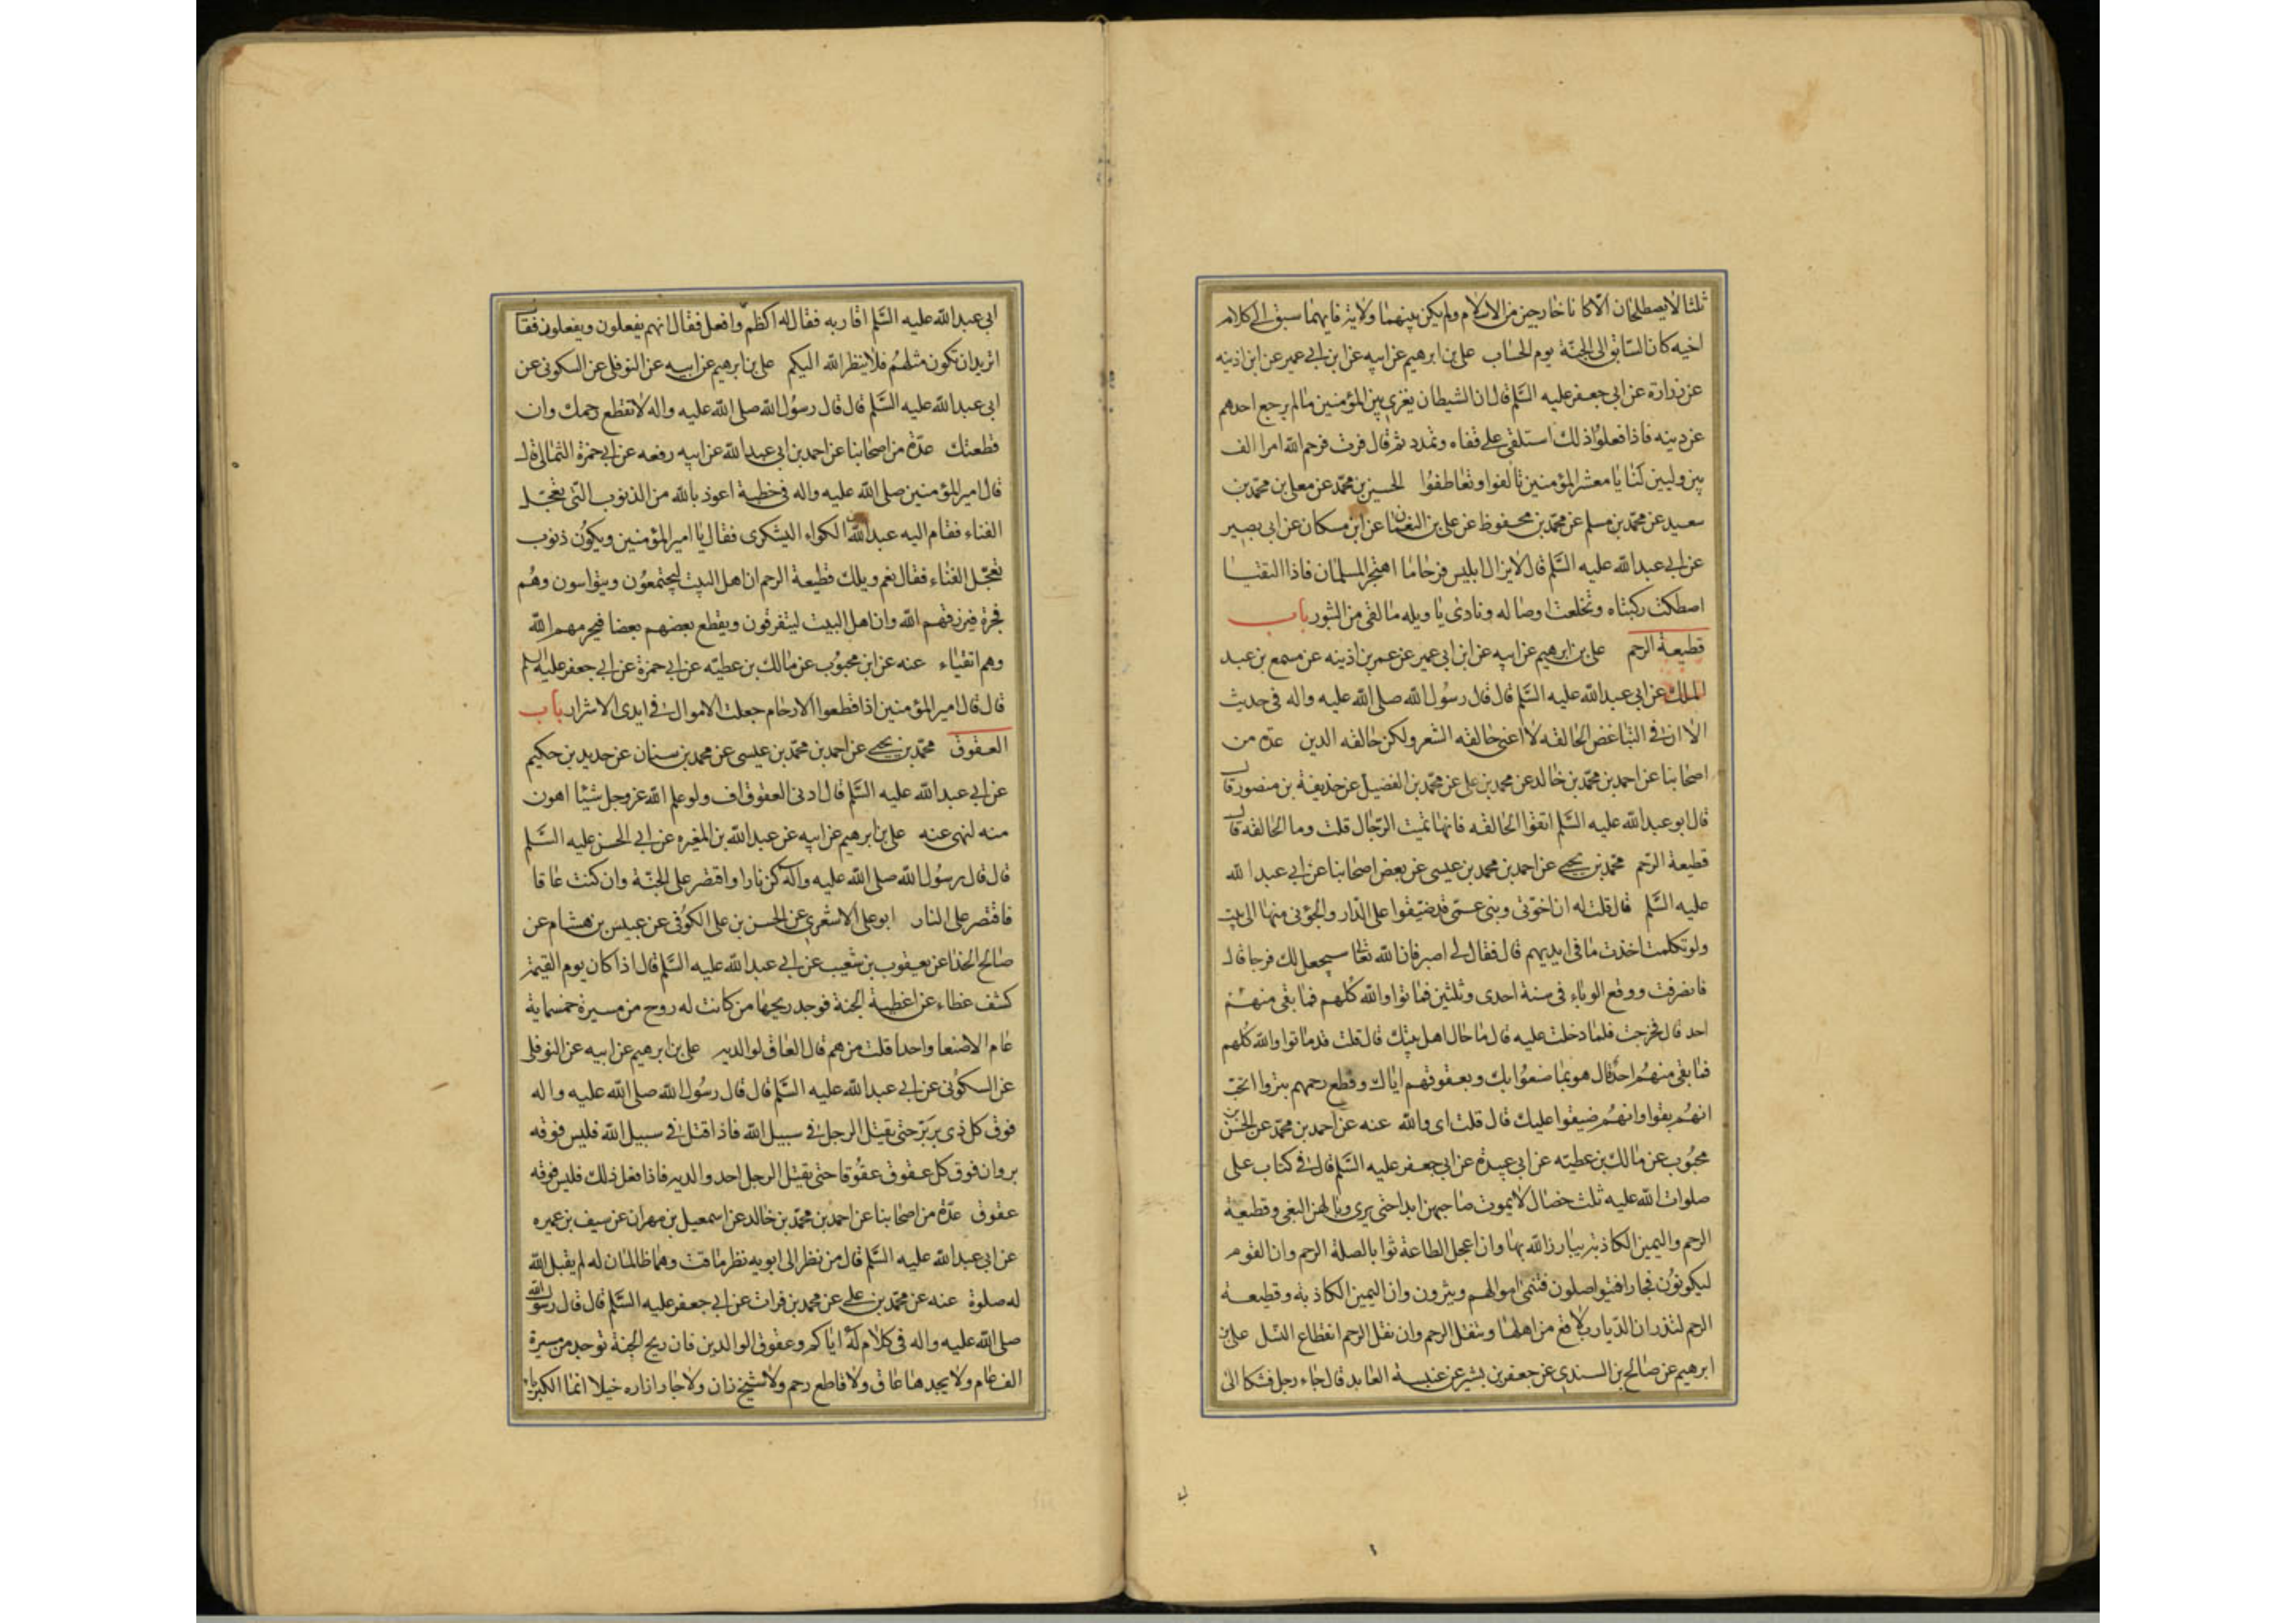 ثلثا لا يصطلحان الا كانا خارجين من الاسلام ولم يكن بينهما ولاية فايهما سبق الى كلام
اخيه كان السابق الى الجنة يوم الحساب على بن ابرهيم عن ابيه عن ابن ابي عمير عن ابن اذينه
عن زرارة عن ابى جعفر عليه السلم قال ان الشيطان يغرى بين المؤمنين ما لم يرجع احدهم
عن دينه فاذا فعلوا ذلك استلقى على قفاه وتمدد ثم قال فزت فرحم الله امرا الف
بين وليين لنا يا معشر المؤمنين تالفوا وتعاطفوا الحسين بن محمد عن معلى بن محمد بن
سعيد عن محمد بن مسلم عن محمد بن محفوظ عن على بن النعمان عن ابن مسكان عن ابى بصير
عن ابي عبد الله عليه السلم قال لا يزال ابليس فرحا ما اهتجر المسلمان فاذا التقيا
اصطكت ركبتاه وتخلعت اوصاله ونادى يا ويله ما لقى من الثبور باب
قطيعة الرحم على بن ابرهيم عن ابيه عن ابن ابى عمير عن عمر بن اذينه عن مسمع بن عبد
الملك عن ابى عبد الله عليه السلم قال قال رسول الله صلى الله عليه واله فى حديث
الا ان في التباغض الحالقه لا اعنى حالقه الشعر ولكن حالقه الدين عدة من
اصحابنا عن احمد بن محمد بن خالد عن محمد بن على عن محمد بن الفضيل عن حذيفة بن منصور قال
قال ابو عبد الله عليه السلم اتقوا الحالقه فانها تميت الرجال قلت وما الحالقه قال
قطيعة الرحم محمد بن يحيى عن احمد بن محمد بن عيسى عن بعض اصحابنا عن ابي عبد الله
عليه السلم قال قلت له ان اخوتى وبنى عمى قد ضيقوا على الدار والجؤنى منها الى بيت
ولو تكلمت اخذت ما فى ايديهم قال فقال لى اصبر فان الله تعالى سيجعل لك فرجا قال
فانصرفت ووقع الوباء فى سنة احدى وثلثين فماتوا والله كلهم فما بقى منهم
احد قال فخرجت فلما دخلت عليه قال ما حال اهل بيتك قال قلت قد ماتوا والله كلهم
فما بقى منهم احد قال هو بما صنعوا بك وبعقوقهم اياك وقطع رحمهم بتروا اتحب
انهم بقوا وانهم ضيقوا عليك قال قلت اى والله عنه عن احمد بن محمد عن الحسن بن
محبوب عن مالك بن عطيه عن ابي عبيدة عن ابي جعفر عليه السلم قال في كتاب على
صلوات الله عليه ثلث خصال لا يموت صاحبهن ابدا حتى يرى وبالهن البغى وقطيعة
الرحم واليمين الكاذبة يبارز الله بها وان اعجل الطاعة ثوابا لصلة الرحم وان القوم
ليكونون فجارا فيتواصلون فتنمى اموالهم ويثرون وان اليمين الكاذبة وقطيعة
الرحم لتذران الديار بلاقع من اهلها وتنقل الرحم وان نقل الرحم انقطاع النسل على بن
ابرهيم عن صالح بن السندى عن جعفر بن بشير عن عنبسة العابد قال جاء رجل فشكا الى
ابي عبد الله عليه السلم اقاربه فقال له اكظم وافعل فقال انهم يفعلون ويفعلون فقال
اتريد ان تكون مثلهم فلا ينظر الله اليكم على بن ابرهيم عن ابيه عن النوفلى عن السكونى عن
ابى عبد الله عليه السلم قال قال رسول الله صلى الله عليه واله لا تقطع رحمك وان
قطعتك عدة من اصحابنا عن احمد بن ابى عبد الله عن ابيه رفعه عن ابي حمزة الثمالى قال
قال امير المؤمنين صلى الله عليه واله فى خطبة اعوذ بالله من الذنوب التى تعجل
الفناء فقام اليه عبد الله بن الكواء اليشكرى فقال يا امير المؤمنين ويكون ذنوب
تعجل الفناء فقال نعم ويلك قطيعة الرحم ان اهل البيت ليجتمعون ويتواسون وهم
فجرة فيرزقهم الله وان اهل البيت ليتفرقون ويقطع بعضهم بعضا فيحرمهم الله
وهم اتقياء عنه عن ابن محبوب عن مالك بن عطيه عن ابي حمزة عن ابي جعفر عليه السلم
قال قال امير المؤمنين اذا قطعوا الارحام جعلت الاموال في ايدى الاشرار باب
العقوق محمد بن يحيى عن احمد بن محمد بن عيسى عن محمد بن سنان عن حديد بن حكيم
عن ابي عبد الله عليه السلم قال ادنى العقوق اف ولو علم الله عز وجل شيئا اهون
منه لنهى عنه على بن ابرهيم عن ابيه عن عبد الله بن المغيره عن ابي الحسن عليه السلم
قال قال رسول الله صلى الله عليه واله كن بارا واقتصر على الجنة وان كنت عاقا
فاقتصر على النار ابو على الاشعرى عن الحسن بن على الكوفى عن عبيس بن هشام عن
صالح الحذا عن يعقوب بن شعيب عن ابي عبد الله عليه السلم قال اذا كان يوم القيمة
كشف غطاء عن اغطية الجنة فوجد ريحها من كانت له روح من مسيرة خمسماية
عام الا صنفا واحدا قلت من هم قال العاق لوالديه على بن ابرهيم عن ابيه عن النوفلى
عن السكونى عن ابي عبد الله عليه السلم قال قال رسول الله صلى الله عليه واله
فوق كل ذى بر بر حتى يقتل الرجل في سبيل الله فاذا قتل في سبيل الله فليس فوقه
بر وان فوق كل عقوق عقوقا حتى يقتل الرجل احد والديه فاذا فعل ذلك فليس فوقه
عقوق عدة من اصحابنا عن احمد بن محمد بن خالد عن اسمعيل بن مهران عن سيف بن عميره
عن ابى عبد الله عليه السلم قال من نظر الى ابويه نظر ماقت وهما ظالمان له لم يقبل الله
له صلوة عنه عن محمد بن على عن محمد بن فرات عن ابي جعفر عليه السلم قال قال رسول الله
صلى الله عليه واله فى كلام له اياكم وعقوق الوالدين فان ريح الجنة توجد من مسيرة
الف عام ولا يجدها عاق ولا قاطع رحم ولا شيخ زان ولا جار ازاره خيلا انما الكبرياء